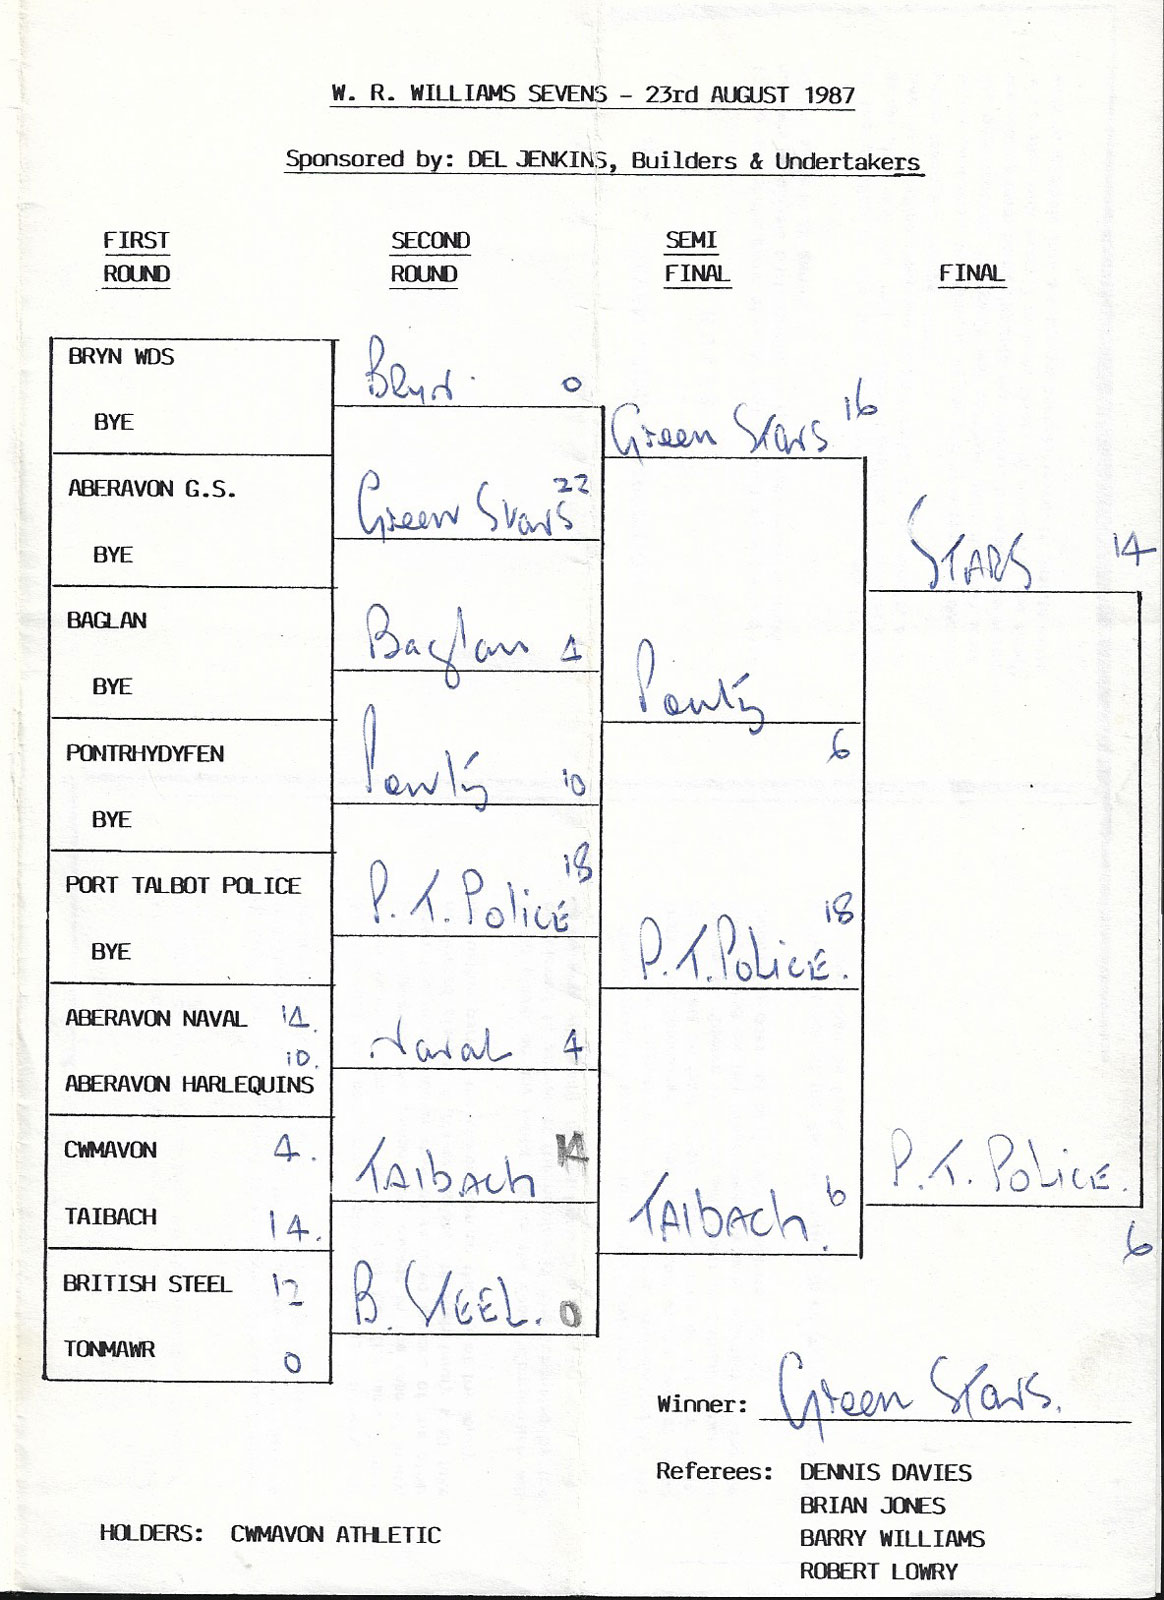 W. R. WILLIAMS SEVENS - 23rd AUGUST 1987
Sponsored by: DEL JENKINS, Builders & Undertakers
FIRST ROUND
SECOND ROUND
SEMI FINAL
FINAL
BRYN WDS
BYE
ABERAVON G.S.
BYE
BAGLAN
BYE
PONTRHYDYFEN
BYE
PORT TALBOT POLICE
BYE
ABERAVON NAVAL 14.
10.
ABERAVON HARLEQUINS
CWMAVON 4.
TAIBACH 14.
BRITISH STEEL 12
TONMAWR 0
Bryn. 0
Green Stars 22
Baglan 4
Ponty 10
P.T. Police 18
Naval 4
TAIbACH 14
B. STEEL. 0
Green Stars 16
Ponty
6
P.T. PoLiCE. 18
TAIbACH. 6
STARS 14
P.T. PoLiCE.
6
Winner: Green Stars.
Referees: DENNIS DAVIES
BRIAN JONES
BARRY WILLIAMS
ROBERT LOWRY
HOLDERS: CWMAVON ATHLETIC